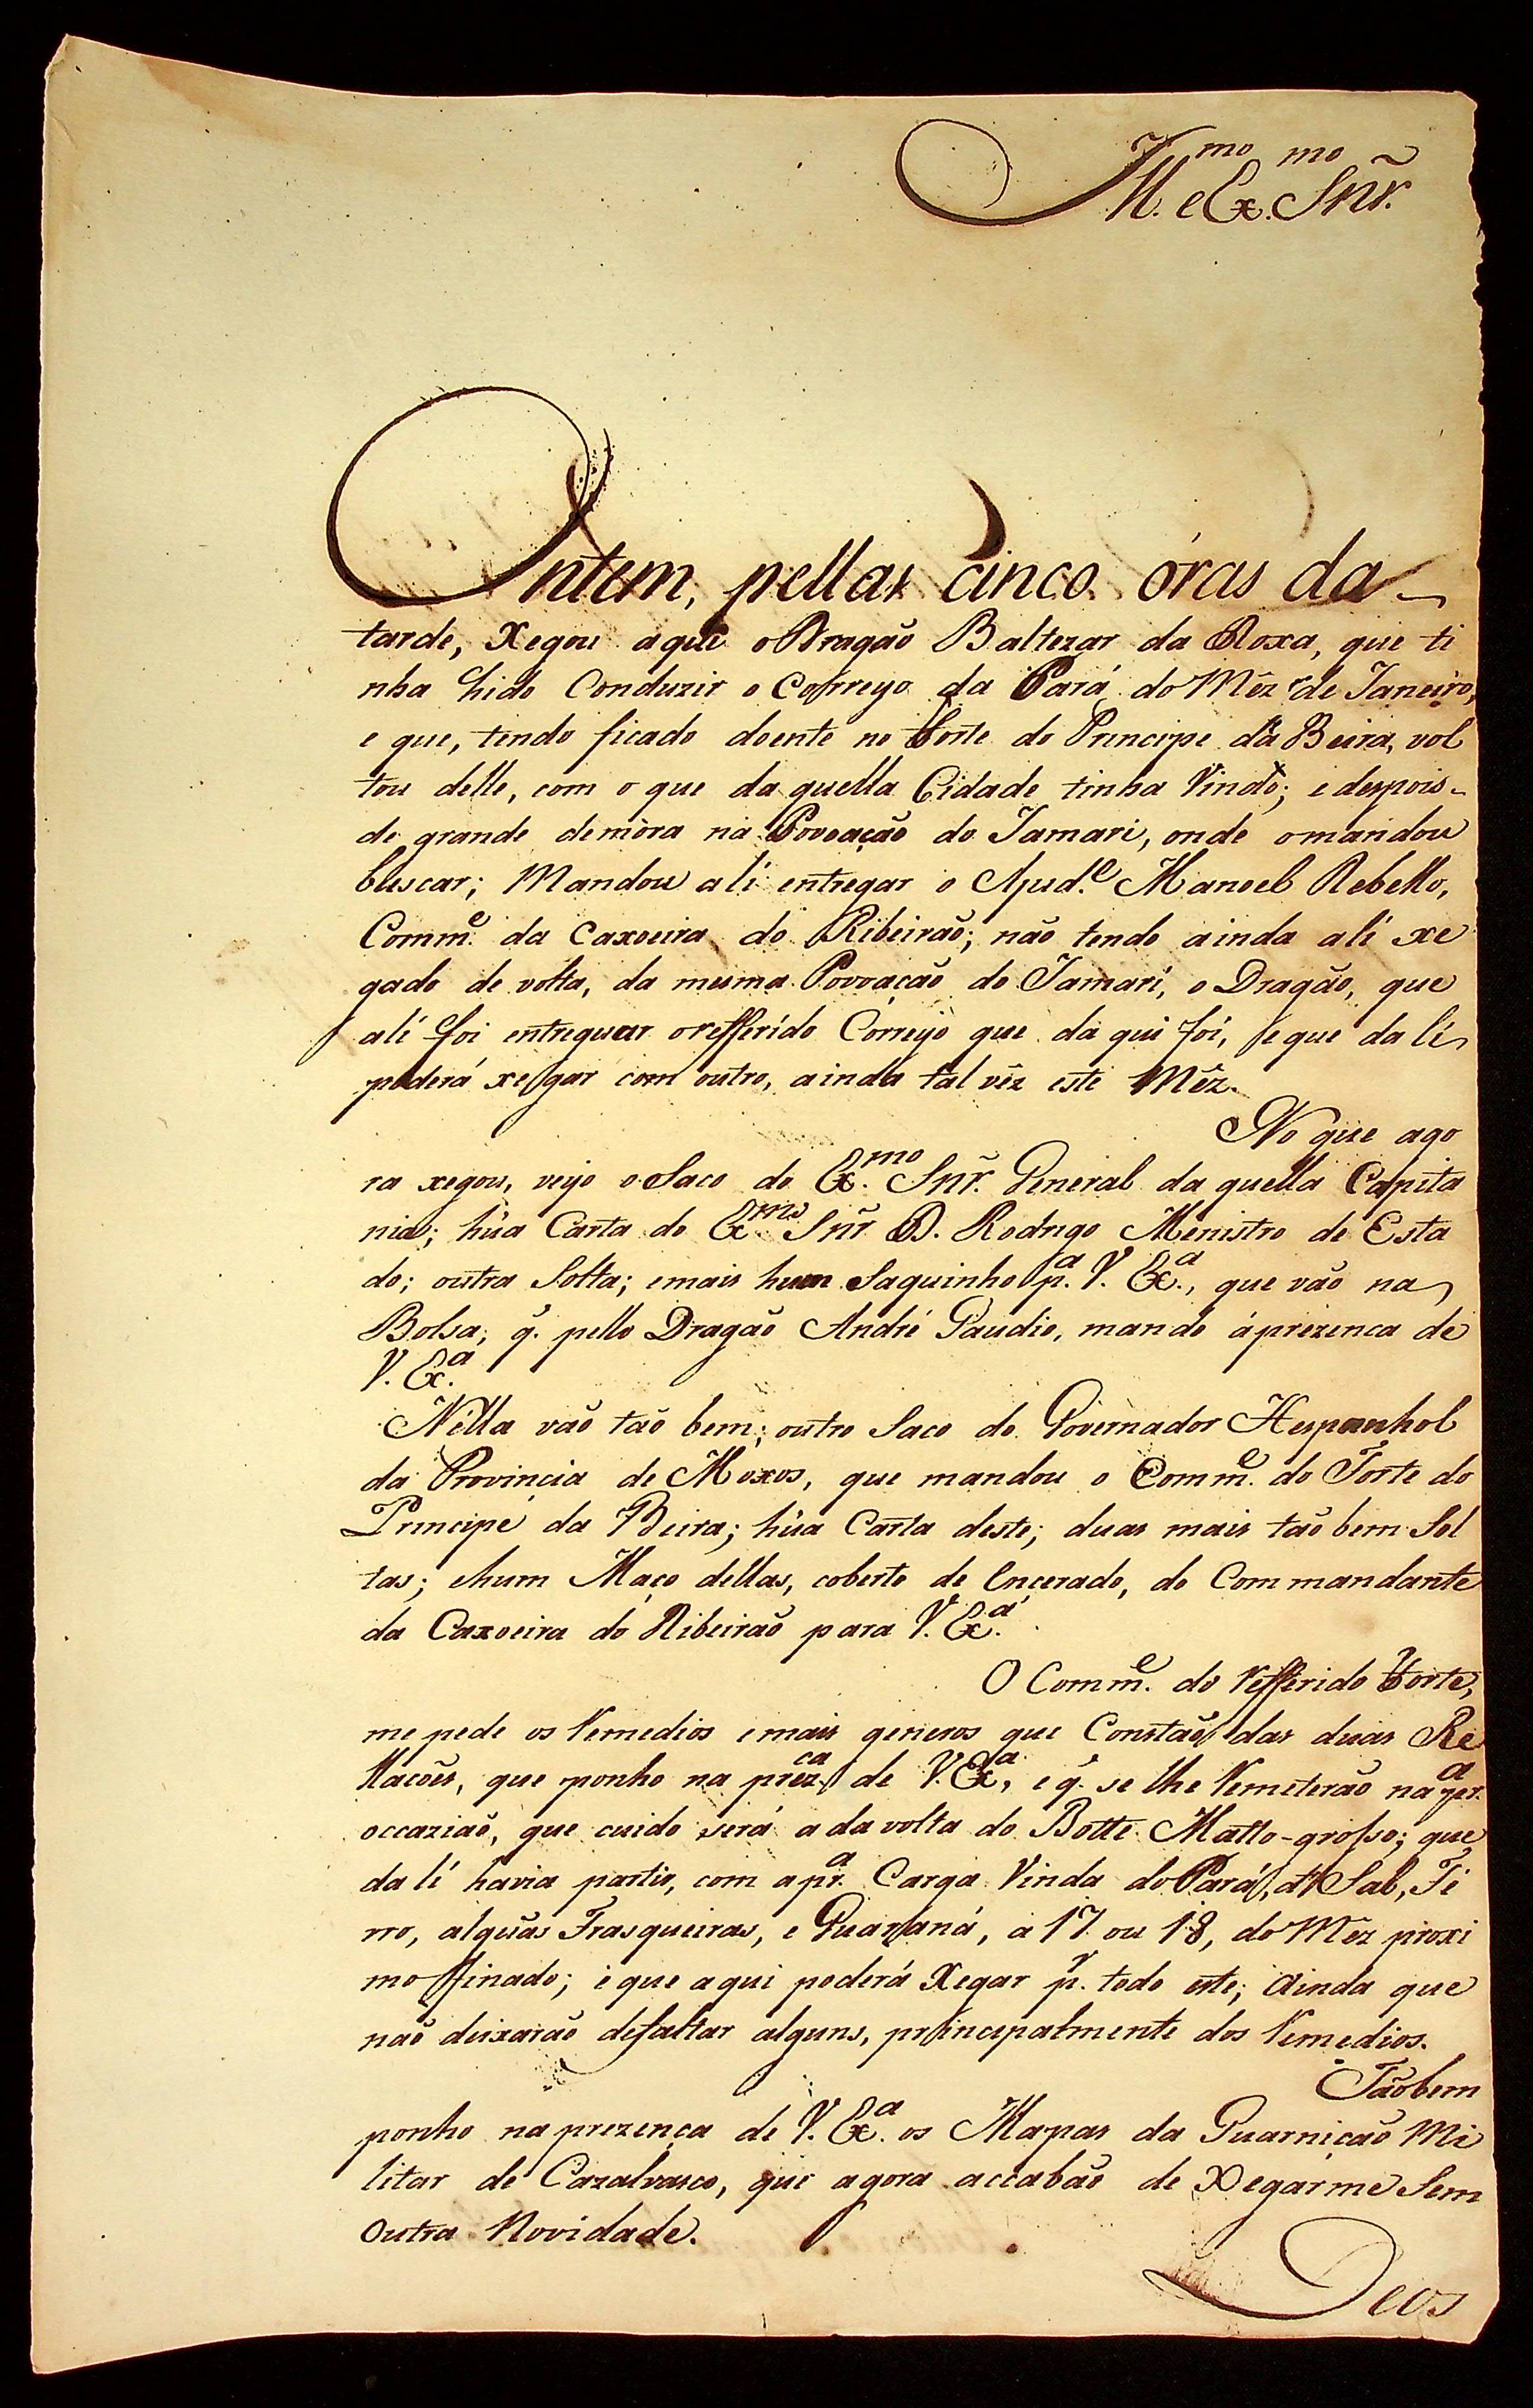 Ill.mo e Ex.mo Snr.
Ontem, pellas cinco óras da
tarde, Xegou aqui o Dragão Baltezar da Roxa, que ti
nha hido Conduzir o Correyo da Pará do Mêz de Janeiro,
e que, tendo ficado doente no Forte do Principe da Beira, vol
tou delle, com o que da quella Cidade tinha Vindo; e despois
de grande demóra na Povoação do Jamari, onde o mandou
buscar; Mandou ali entregar o Ajud.e Manoel Rebello,
Comm.e da Caxoeira do Ribeirão; não tendo ainda alí xe
gado de volta, da mesma Povoação do Jamarí, o Dragão, que
alí foi entreguar o refferído Correyo que da qui foí, e que da lí
poderá xegar com outro, ainda tal vêz este Mêz.
No que ago
ra xegou, veyo o Saco do Ex.mo Snr. General da quella Capita
nia; hũa Carta do Ex.mo Snr D. Rodrigo Menistro de Esta
do; outra Solta; e mais hum Saquinho p.a V. Ex.a, que vão na
Bolsa, q. pello Dragão André Gaudio, mando á prezenca de
V. Ex.a
Nella vão tão bem; outro Saco do Governador Hespanhol
da Provincia de Moxos, que mandou o Comm.e do Forte do
Principe da Beira; hũa Carta deste; duas mais tão bem Sol
tas; e hum Maço dellas, coberto de Encerado, do Commandante
da Caxoeira do Ribeirão para V. Ex.a
O Comm.e do refferido Forte,
me pede os Remedios e mais generos que Constão das duas Re
llacões, que ponho na prez.ca de V. Ex.a, e q. se lhe Remeterão na pr.a
occazião, que cuido será a da volta do Botte Matto-grosso; que
da lí havia partir, com a pr.a Carga Vinda do Pará, de Sal, Fe
rro, algũas Frasqueiras, e Guaraná, a 17 ou 18, do Mez proxi
mo finado; e que aqui poderá Xegar p.r todo este; Ainda que
não deixarão defaltar alguns, principalmente dos Remedios.
Tãobem
ponho na prezença de V. Ex.a os Mapas da Guarnição Mi
litar de Cazalvasco, que agora accabão de Xegárme Sem
Outra Novidade.
Deos